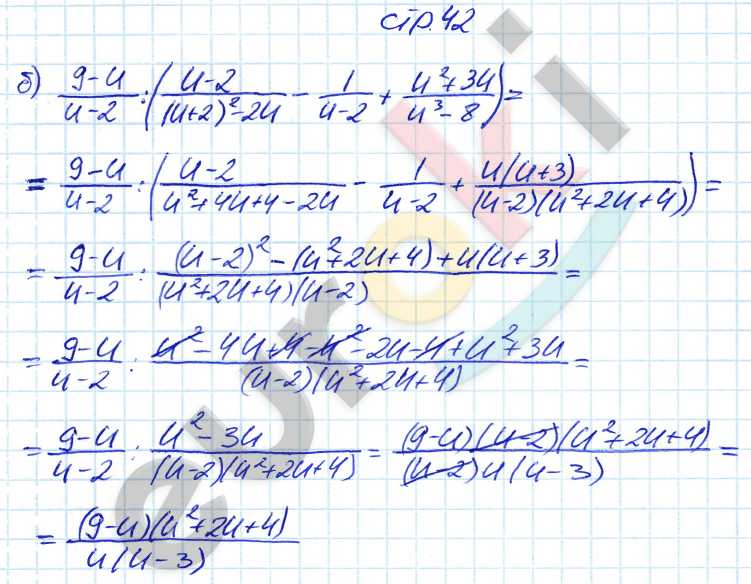 стр. 42
б) (9-u)/(u-2) : ((u-2)/((u+2)²-2u) - 1/(u-2) + (u²+3u)/(u³-8)) =
= (9-u)/(u-2) : ((u-2)/(u²+4u+4-2u) - 1/(u-2) + u(u+3)/((u-2)(u²+2u+4))) =
= (9-u)/(u-2) : ((u-2)²-(u²+2u+4)+u(u+3))/((u²+2u+4)(u-2)) =
= (9-u)/(u-2) : (u²-4u+4-u²-2u-4+u²+3u)/((u-2)(u²+2u+4)) =
= (9-u)/(u-2) : (u²-3u)/((u-2)(u²+2u+4)) = ((9-u)(u-2)(u²+2u+4))/((u-2)u(u-3)) =
= ((9-u)(u²+2u+4))/(u(u-3))
euroki